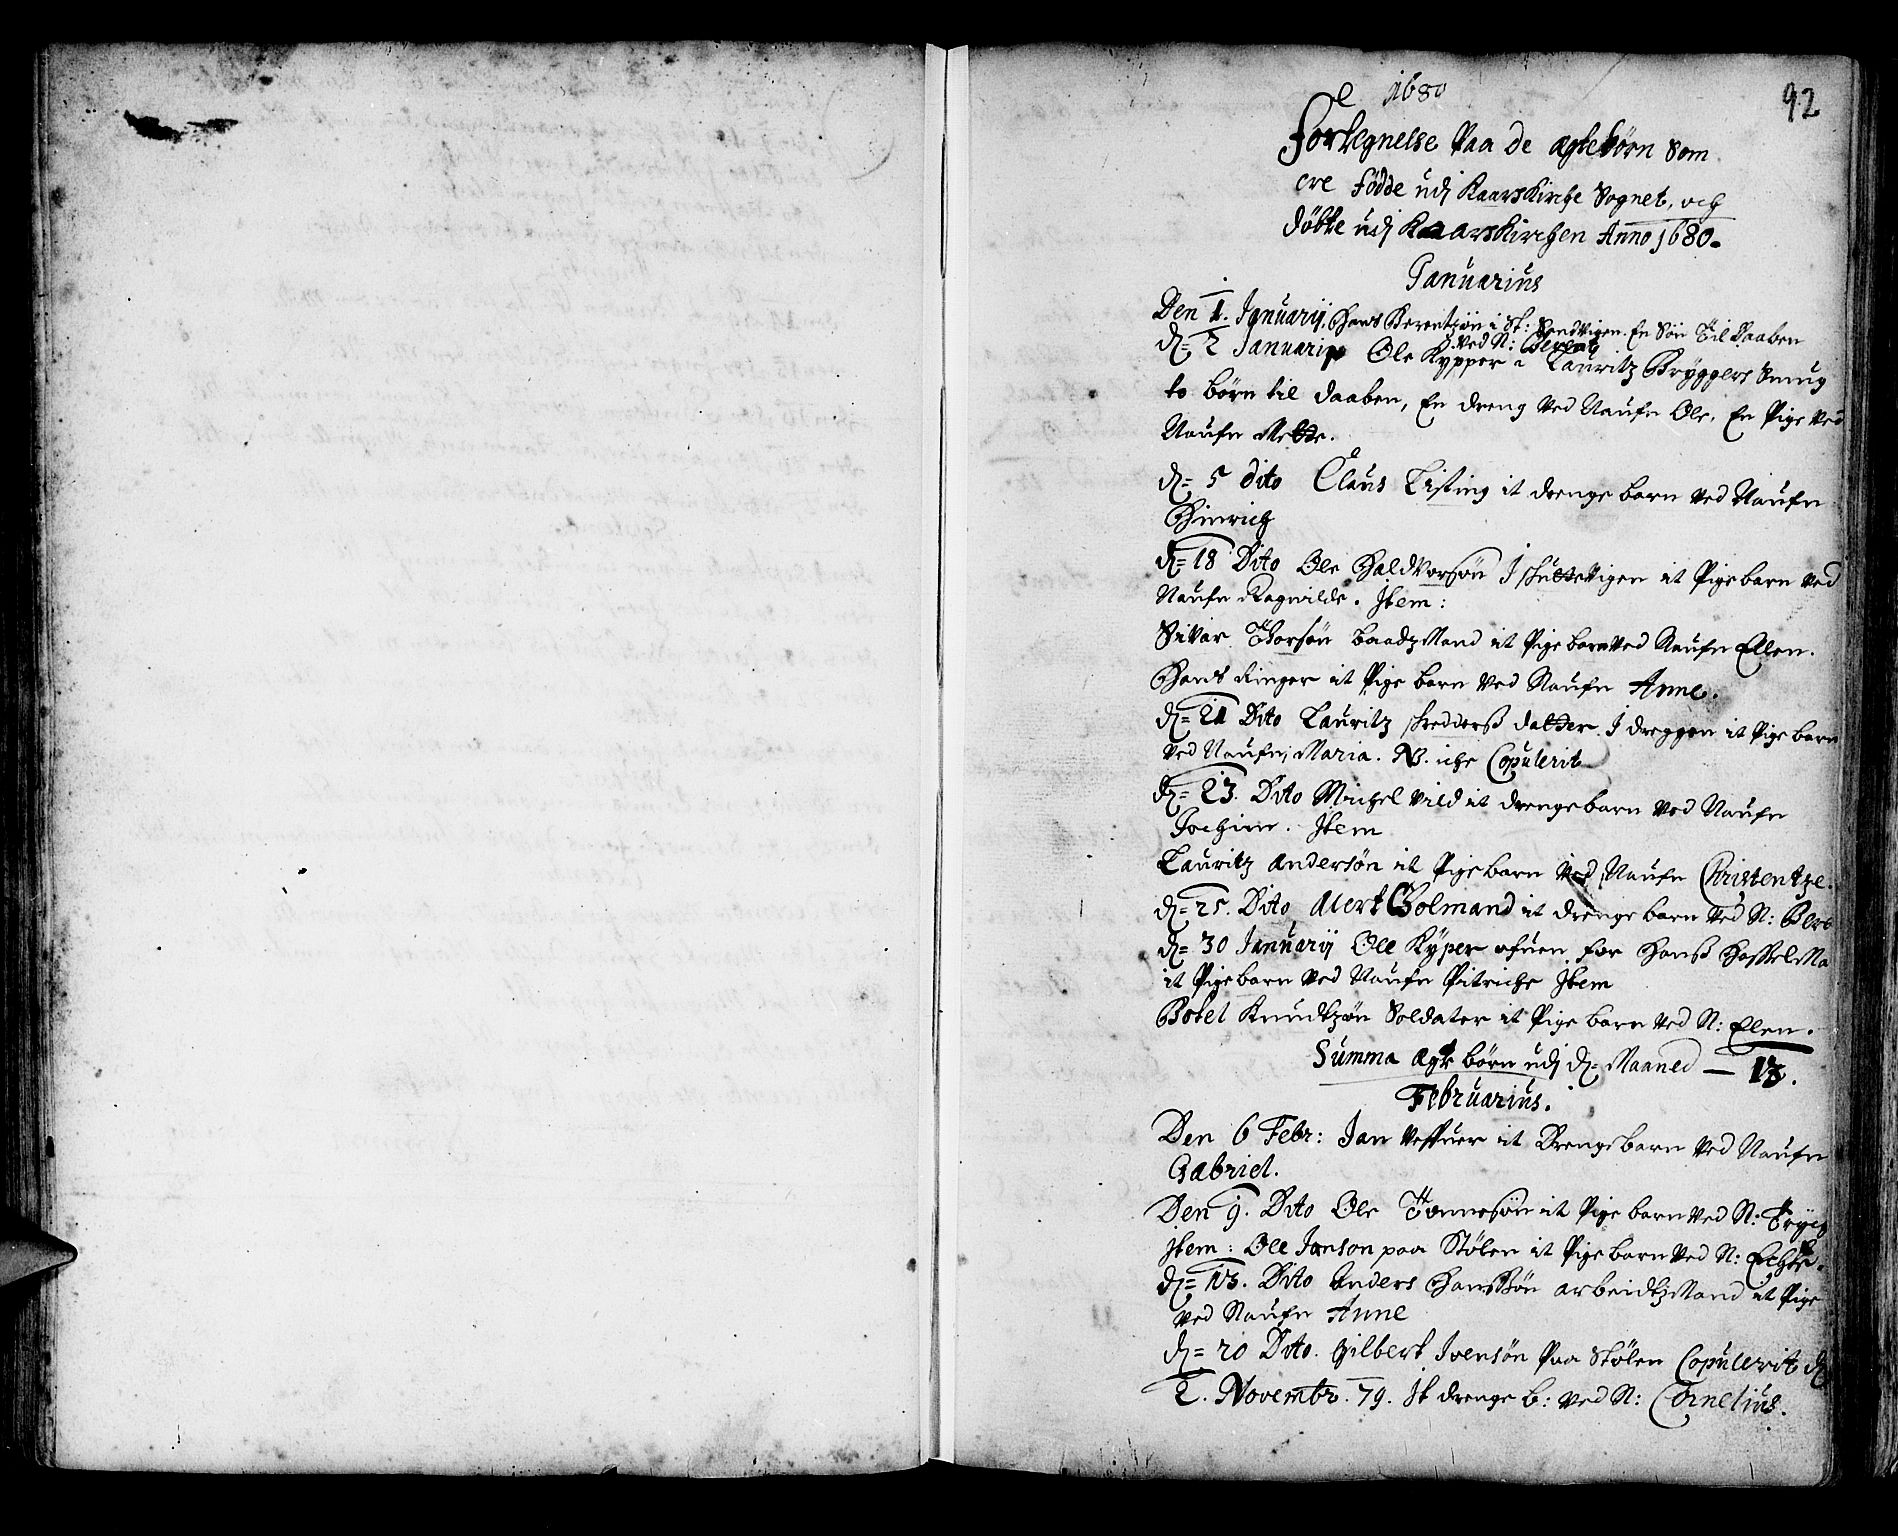 1680
92
Fortegnelse Paa De ægtebörn Som
ere födde udj KaarsKirche Sognet, och
döbte udj KaarsKirchen Anno 1680.
Januarius
Den 1. Januarij, Hans Berentzön i St: Sandvigen. En Sön Til Daaben
Ved N: Berent
d= 2 Januarij Ole Kypper i Lauritz Bryggers Smug
to börn til daaben, En dreng Ved Naufn Ole, En Pige Ved
Naufn Mette.
d= 5 dito Claus Listing it drenge barn Ved Naufn
Hinrich
d= 18 Dito Ole Haldvorsön I skuttevigen it Pige barn Ved
Naufn Ragnilde. Item:
Sivar Torsön baadzMand it Pige barn Ved Naufn Ellen.
Hans Ringer it Pige barn Ved Naufn Anne.
d= 21 Dito Lauritz skredderß datter I dreggen it Pige barn
Ved Naufn, Maria. NB. iche Copulerit
d= 23. Dito Michel Vild it drengebarn Ved Naufn
Jochim. Item
Lauritz Andersön it Pigebarn Ved Naufn Christentze.
d= 25. Dito Alert Bolmand it drenge barn Ved N: Bere
d= 30 Januarij Ole Kyper ofuen for Hanß
it Pigebarn Ved Naufn Pitriche Item
Botel Knudtzön Soldater it Pige barn Ved N: Elen.
Summa Ægte börn udj d= Maaned — 13.
Februarius.
Den 6 Febr: Jan Veffuer it Drengebarn Ved Naufn
Gabriel.
Den 9. Dito Ole Tönnesön it Pige barn Ved N:
Item: Ole Janson paa Stölen it Pige barn Ved N:
d= 13. Dito Anders Hanssön arbeidtzMand it Pige
Ved Naufn Anne
d= 20 Dito. Gilbert Ivensön Paa Stölen Copulerit d
2. Novembr. 79. It drenge b: Ved N: Cornelius.